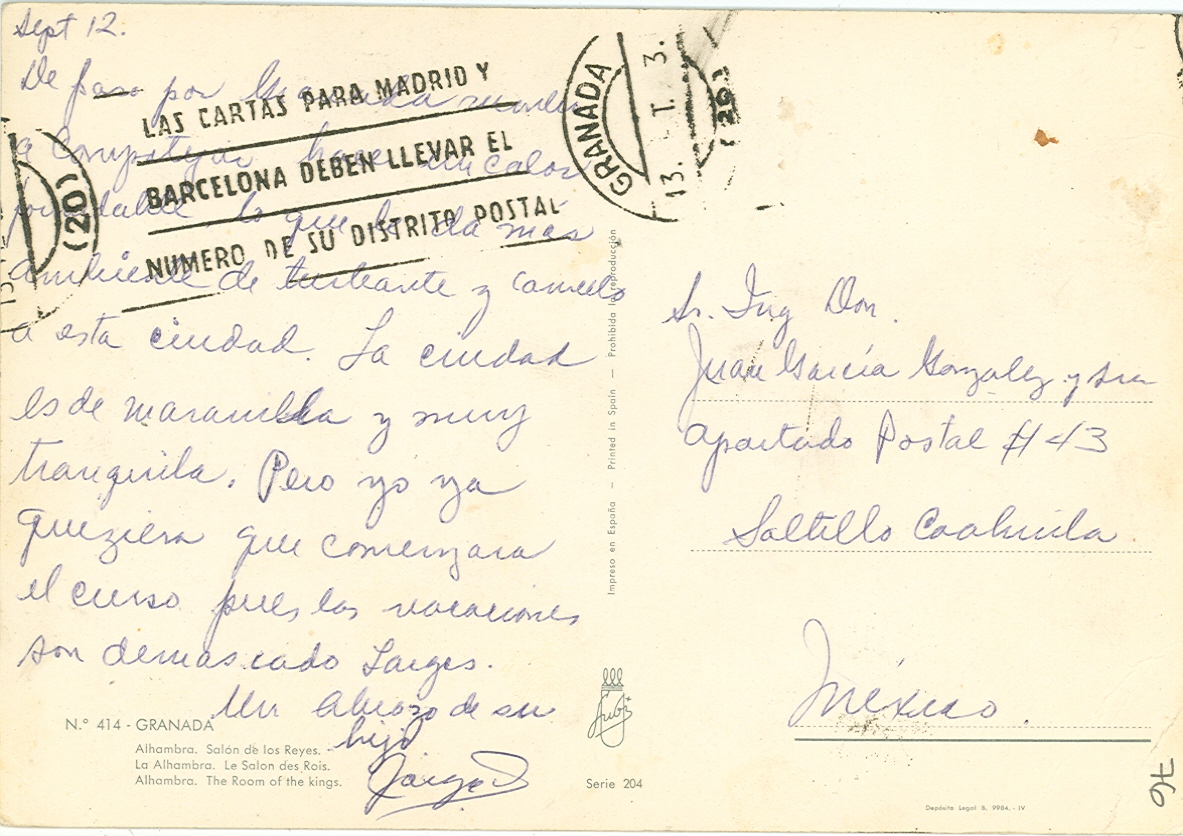 Sept 12.
De paso por Granada rumbo
a hace un calor
formidable lo que le da mas
ambiente de turbante y camello
a esta ciudad. La ciudad
es de maravilla y muy
tranquila. Pero yo ya
queziera que comenzara
el curso pues las vacaciones
son demasiado larges.
Un abrazo de su
hijo
Jorge
LAS CARTAS PARA MADRID Y
BARCELONA DEBEN LLEVAR EL
NUMERO DE SU DISTRITO POSTAL
(20)
GRANADA
13. 3.
(20)
N.° 414 - GRANADA
Alhambra. Salón de los Reyes.
La Alhambra. Le Salon des Rois.
Alhambra. The Room of the kings.
Impreso en España — Printed in Spain — Prohibida la reproducción
Serie 204
Sr. Ing Don.
Juan García Gonzalez y Sra
Apartado Postal # 43
Saltillo Coahuila.
México.
Depósito Legal B. 9984. - IV
76